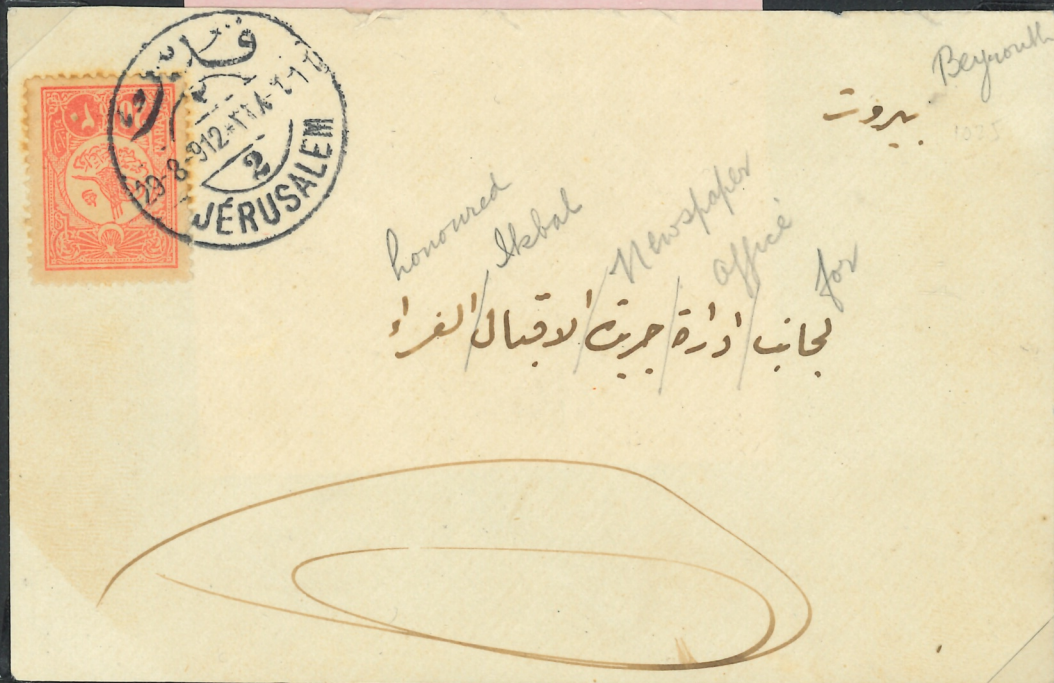 قدس
29-8-912
2
JÉRUSALEM
Beyrouth
بيروت
honoured / Ikbal / Newspaper / office / for
لجانب / ادارة / جريدة / الاقبال / الغراء